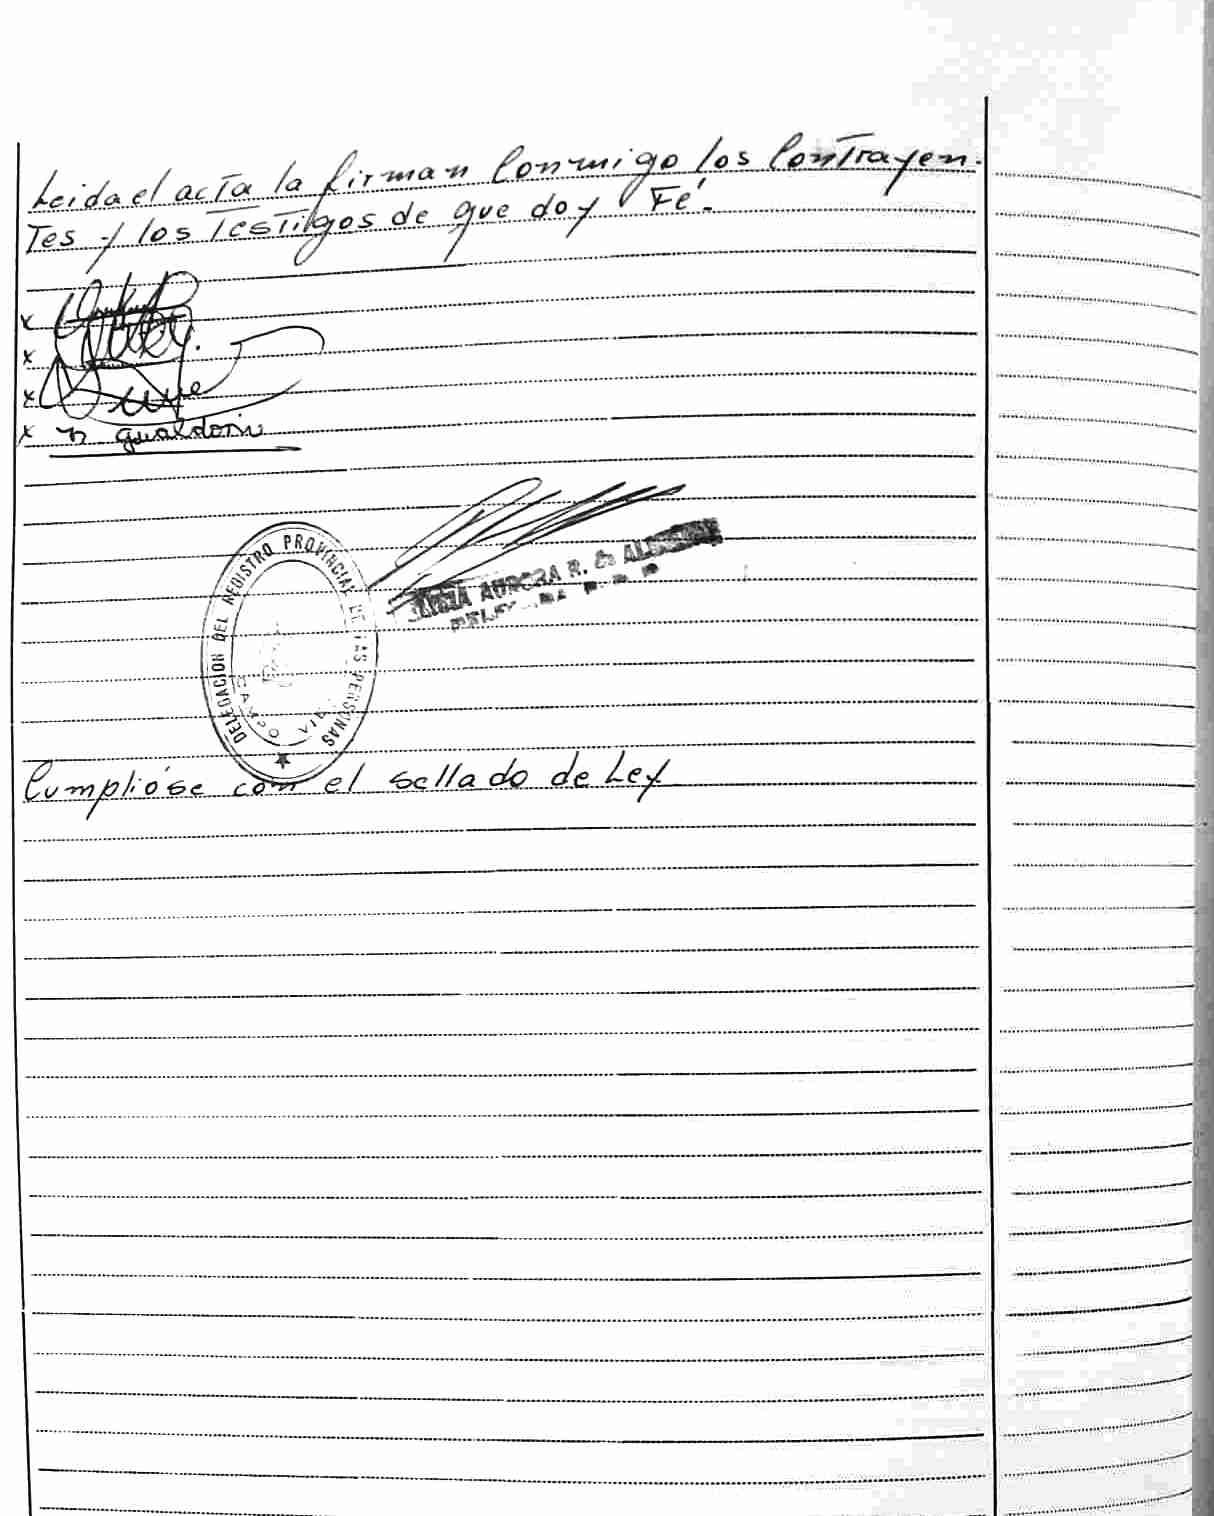 Leida el acta la firman Conmigo los Contrayen.
Tes y los Testilgos de que doy Fé.
x
x
x
x n gualdoni
DELEGACION DEL REGISTRO PROVINCIAL DE LAS PERSONAS
AURORA R. de
Cumplióse con el sellado de Ley